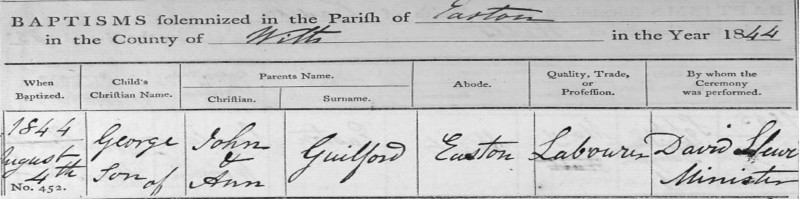 BAPTISMS solemnized in the Parish of Easton
in the County of Wilts in the Year 1844
When Baptized. Child's Christian Name. Parents Name. Abode. Quality, Trade, or Profession. By whom the Ceremony was performed.
Christian. Surname.
1844 George John Guilford Easton Labourer David
August & 
4th Son of Ann Minister
No. 452.